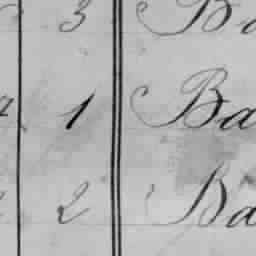 3 Ba
1 Ba
2 Ba